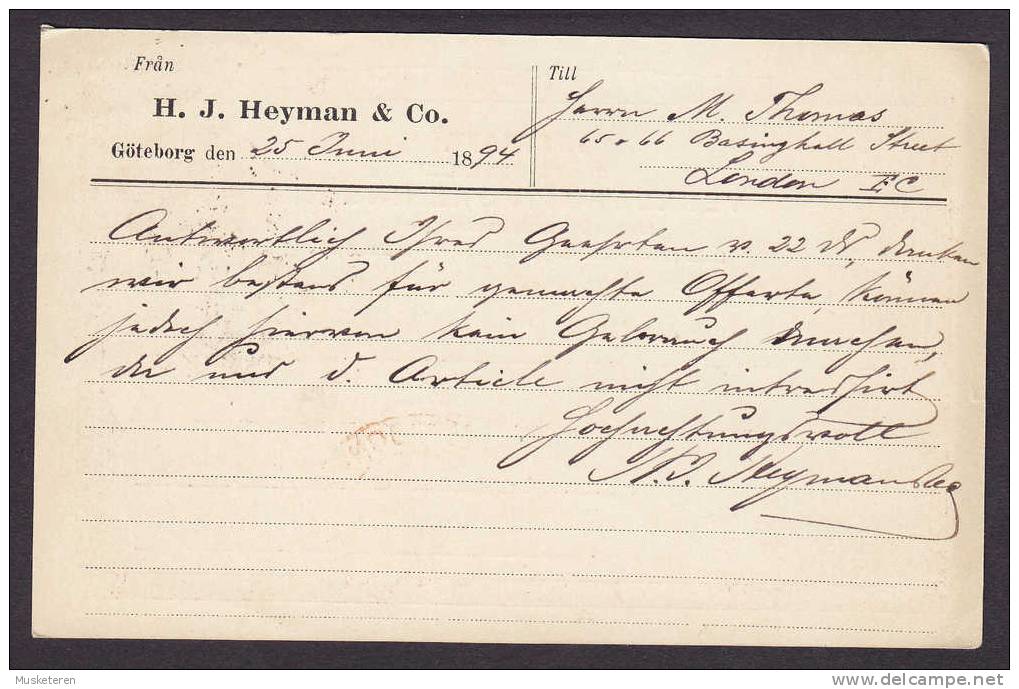 Från
H. J. Heyman & Co.
Göteborg den 25 Juni 1894
Till
Herrn M. Thomas
65 & 66 Basinghall Street
London EC
Antwortlich Ihres Geehrten v. 22 ds, danken
wir bestens für gemachte Offerte, können
jedoch hiervon kein Gebrauch machen,
da uns d. Article nicht intressirt
Hochachtungsvoll
H. J. Heyman & Co
Musketeren
www.delcampe.net